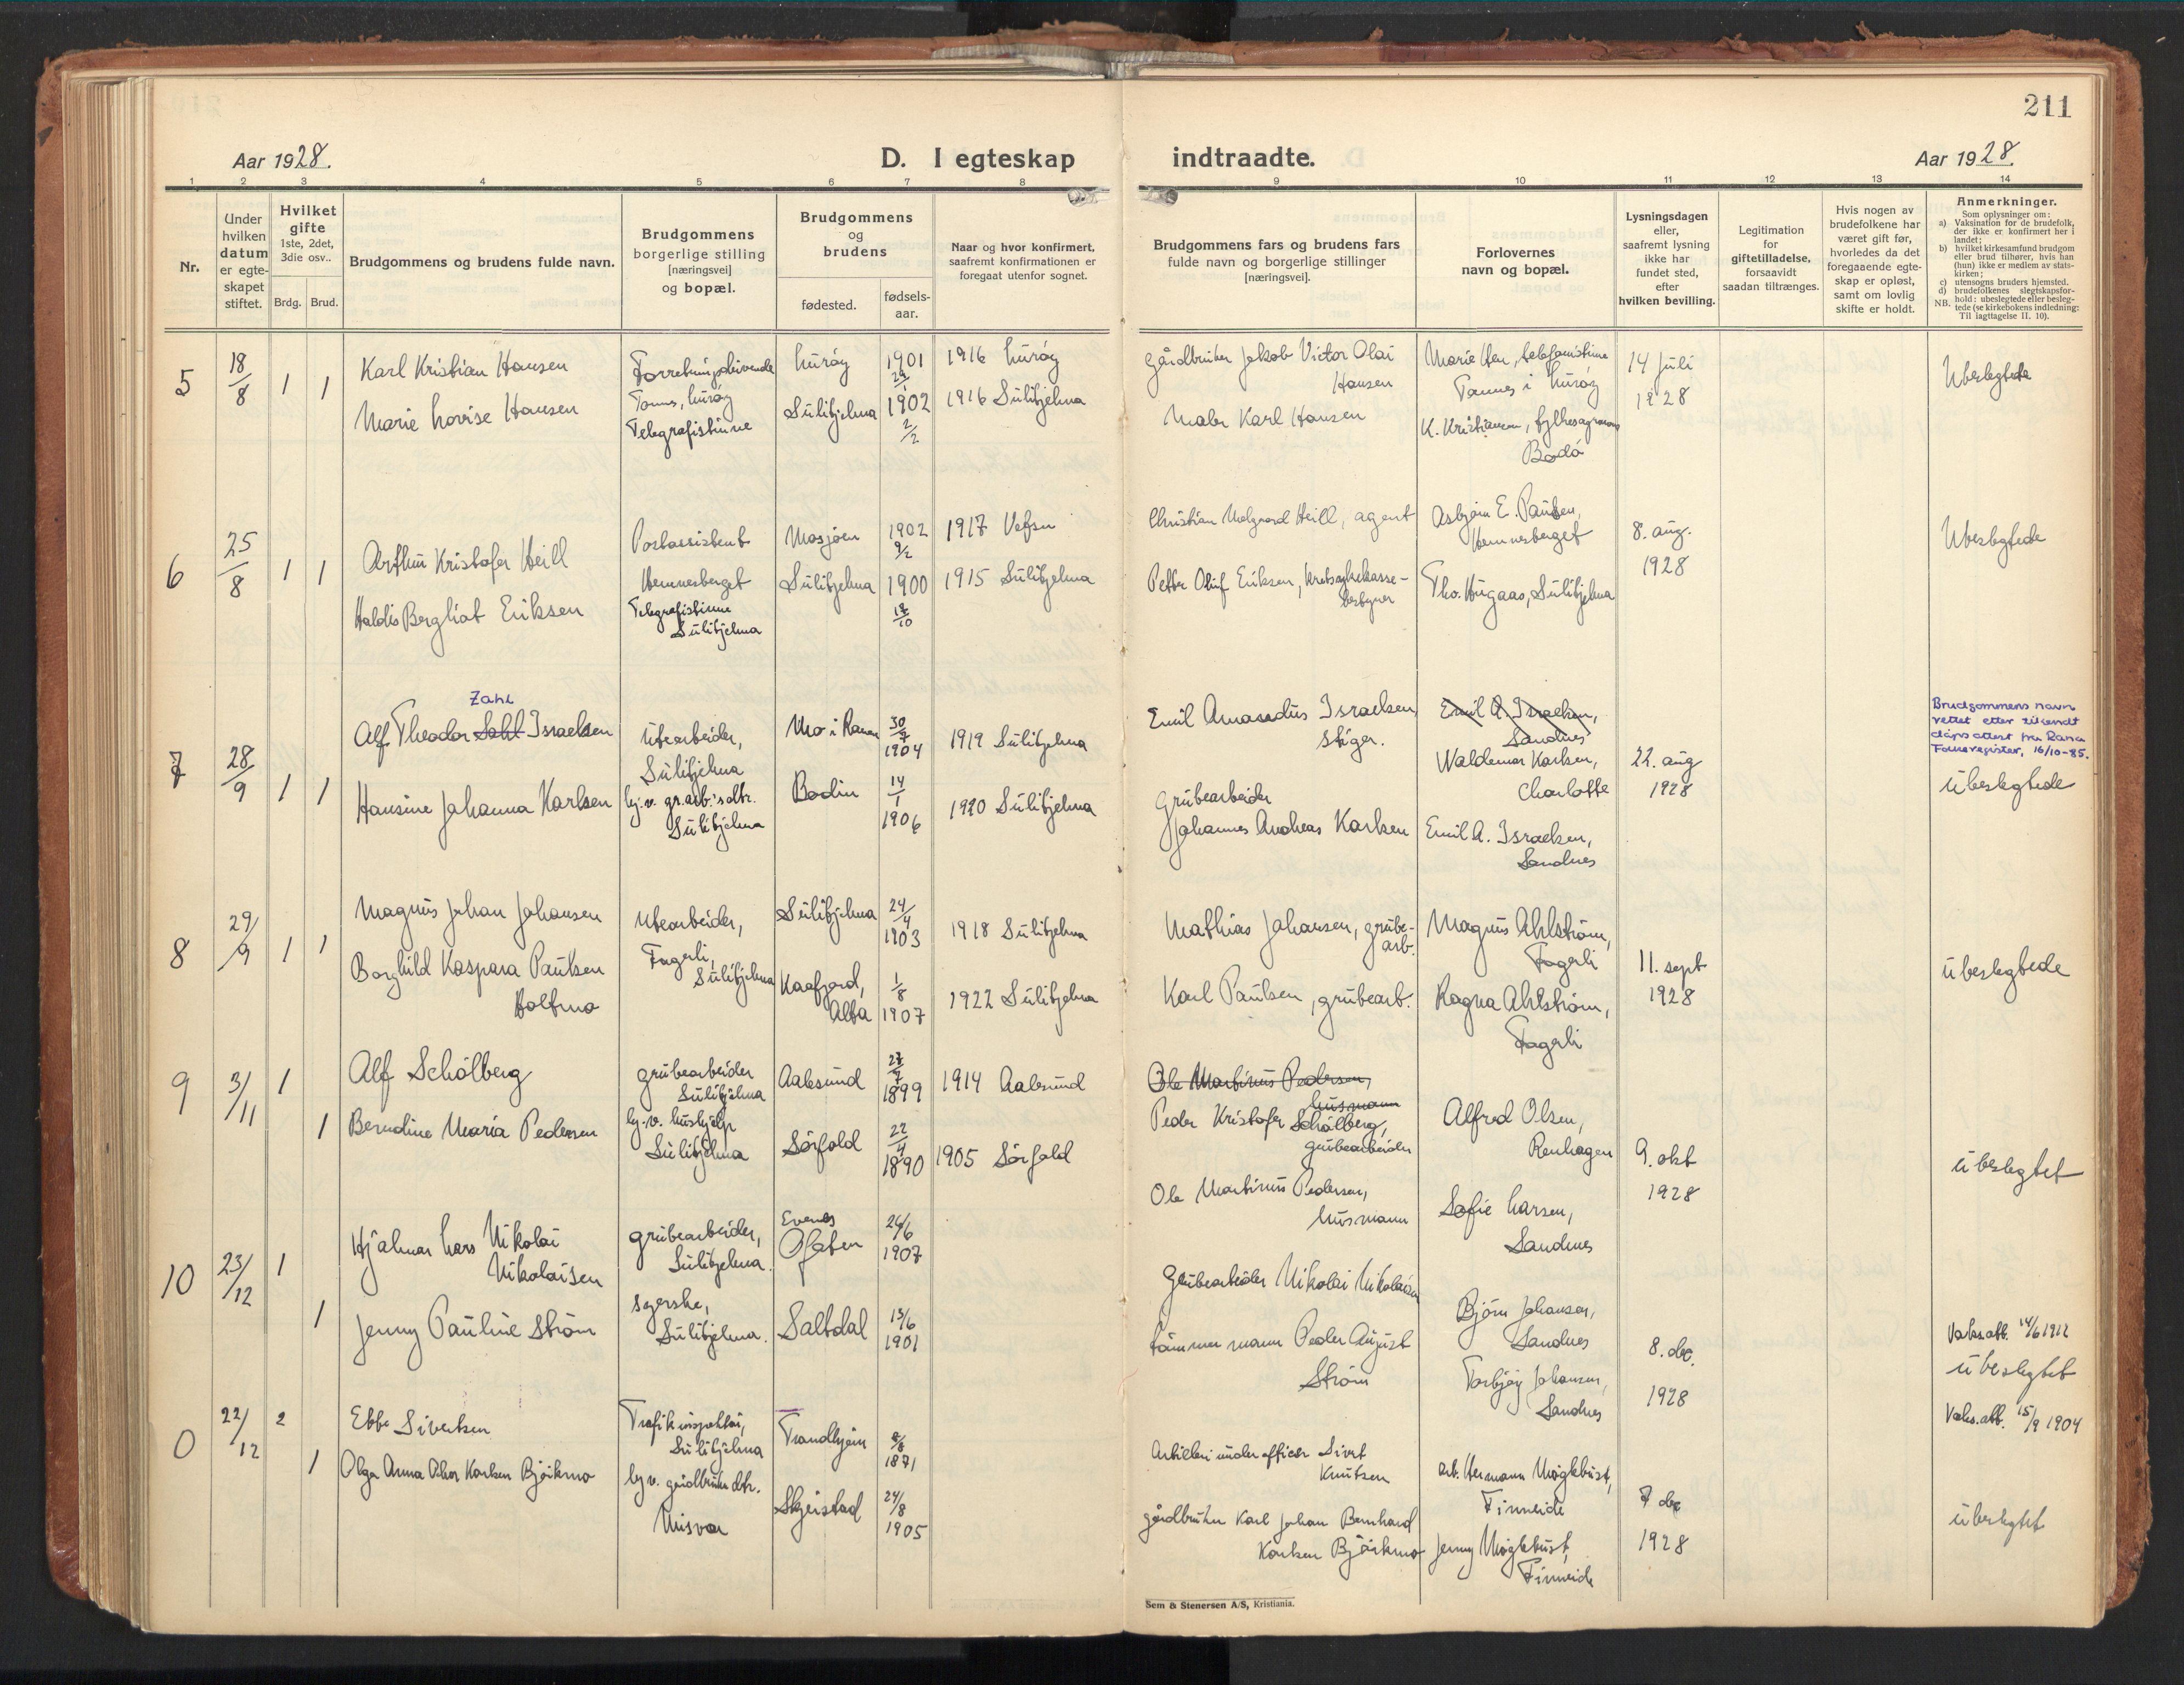 211
Aar 1928.
D. I egteskap
indtraadte.
Aar 1928.
1 2 3 4 5 6 7 8 9 10 11 12 13 14
Nr.
Under hvilken datum er egte-skapet stiftet.
Hvilket gifte
1ste, 2det, 3die osv..
Brdg. Brud.
Brudgommens og brudens fulde navn.
Brudgommens borgerlige stilling
[næringsvei]
og bopæl.
Brudgommens
og
brudens
fødested.
fødsels-aar.
Naar og hvor konfirmert,
saafremt konfirmationen er
foregaat utenfor sognet.
Brudgommens fars og brudens fars
fulde navn og borgerlige stillinger
[næringsvei].
Forlovernes
navn og bopæl.
Lysningsdagen
eller,
saafremt lysning
ikke har
fundet sted,
efter
hvilken bevilling.
Legitimation
for
giftetilladelse,
forsaavidt
saadan tiltrænges.
Hvis nogen av
brudefolkene har
været gift før,
hvorledes da det
foregaaende egte-
skap er opløst,
samt om lovlig
skifte er holdt.
Anmerkninger.
Som oplysninger om:
a) Vaksination for de brudefolk,
der ikke er konfirmert her i
landet;
b) hvilket kirkesamfund brudgom
eller brud tilhører, hvis han
(hun) ikke er medlem av stats-
kirken;
c) utensogns bruders hjemsted.
d) brudefolkenes slegtskapsfor-
NB. hold: ubeslegtede eller besleg-
tede (se kirkebokens indledning:
Til iagttagelse II. 10).
5
18/8
1 1
Karl Kristian Hansen
Marie Lovise Hansen
Forretningsdrivende
Tonnes, Lurøy
Telegrafistinne
Lurøy
Sulitjelma
1901
24/1
1902
2/2
1916 Lurøy
1916 Sulitjelma
Gårdbruker Jakob Victor Olai
Hansen
Maler Karl Hansen
Tonnes i Lurøy
K. Kristiansen, fylkesagronom
Bodø
14 juli
1928
Ubeslegtede
6
25/8
1 1
Arthur Kristofer Heill
Haldis Bergliot Eriksen
Postassistent
Hemnesberget
Telegrafistinne
Sulitjelma
Mosjøen
Sulitjelma
1902
9/2
1900
1917 Vefsn
1915 Sulitjelma
Christian Heill, agent
Petter Oluf Eriksen, kretssykekasse-
bestyrer
Asbjørn E. Paulsen,
Hemnesberget
Tho. Hugaas, Sulitjelma
8. aug.
1928
Ubeslegtede
7
28/9
1 1
Zahl
Alf Theodor Sahl Israelsen
Hansine Johanna Karlsen
Utearbeider,
Sulitjelma
hj. v. gr.arb.'s dtr.
Sulitjelma
Mo i Ranen
Bodin
30/7
1904
14/1
1906
1919 Sulitjelma
1920 Sulitjelma
Emil Amasedius Israelsen,
stiger.
Grubearbeider
Johannes Andreas Karlsen
Emil A. Israelsen,
Sandnes
Waldemar Karlsen,
Charlotta
Emil A. Israelsen,
Sandnes
22. aug
1928
Brudgommens navn
rettet etter tilsendt
dåpsattest fra Rana
Folkeregister, 16/10-85.
Ubeslegtede
8
29/9
1 1
Magnus Johan Johansen
Borghild Kaspara Paulsen
Holtmo
Utearbeider,
Fagerli,
Sulitjelma
Sulitjelma
Kaafjord,
Alta
24/4
1903
1/8
1907
1918 Sulitjelma
1922 Sulitjelma
Mathias Johansen, grube-
arb.
Karl Paulsen, grubearb.
Magnus Ahlstrøm,
Fagerli
Ragna Ahlstrøm,
Fagerli
11. sept
1928
ubeslegtede
9
3/11
1
1
Alf Schølberg
Berndine Maria Pedersen
grubearbeider
Sulitjelma
hj. v. hushjelp
Sulitjelma
Aalesund
Sørfold
27/7
1899
22/4
1890
1914 Aalesund
1905 Sørfold
Ole Martinus Pedersen,
husmann
Peder Kristofer Schølberg,
grubearbeider
Ole Martinus Pedersen,
husmann
Alfred Olsen,
Renhagen
Sofie Larsen,
Sandnes
9. okt
1928
ubeslegtet
10
23/12
1
1
Hjalmar Lars Nikolai
Nikolaisen
Jenny Pauline Strøm
grubearbeider,
Sulitjelma.
syerske,
Sulitjelma.
Evenes
Ofoten
Saltdal
24/6
1907
15/6
1901
Grubearbeider Nikolai Nikolaisen
Tømmermann Peder August
Strøm
Bjørn Johansen,
Sandnes
Torbjørg Johansen,
Sandnes
8. dec.
1928
Vaks.att. 14/6 1912
ubeslegtet
Vaks.att. 15/9 1904
0
22/12
2
1
Ebbe Sivertsen
Olga Anna Karlsen Bjørkmo
Trafikinspektør,
Sulitjelma
hj v. gårdbruker dtr.
Misvær
Trondhjem
Skjerstad
1871
24/8
1905
Artilleri underofficer Sivert
Knutsen
gårdbruker Karl Johan Bernhard
Karlsen Bjørkmo
arb. Hermann Møglebust,
Finneide
Jenny Møglebust,
Finneide
7 dec
1928
ubeslegtet
Sem & Stenersen A/S, Kristiania.